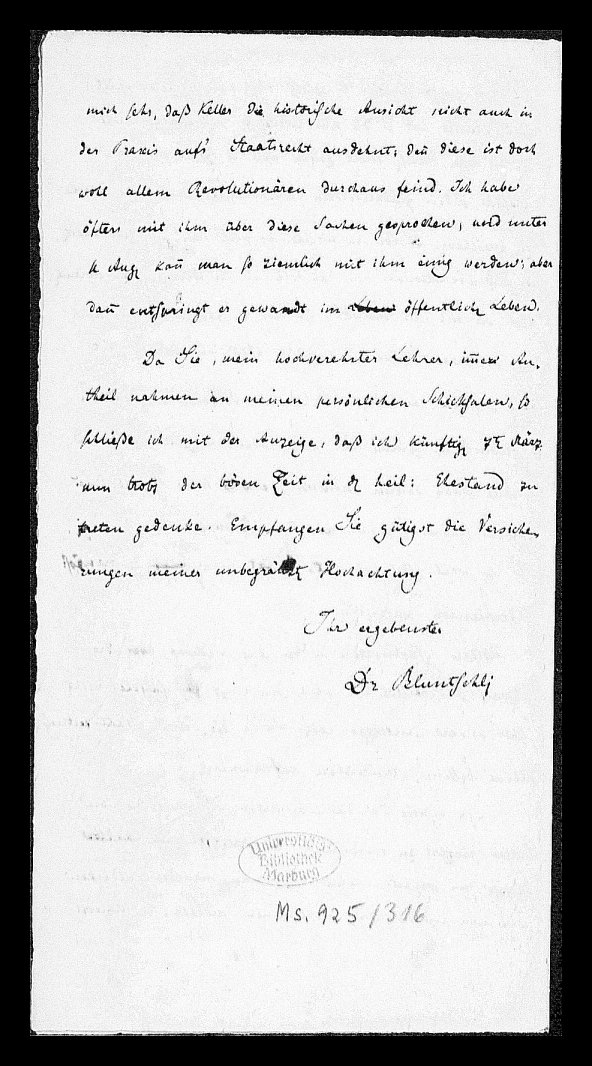 mich sehr, daß Keller die historische Ansicht nicht auch in
der Praxis aufs Staatsrecht ausdehnt; deñ diese ist doch
wohl allem Revolutionären durchaus feind. Ich habe
öfters mit ihm über diese Sachen gesprochen, und unter
4 Aug kañ man so ziemlich mit ihm einig werden; aber
dañ entspringt er gewandt im öffentlich Leben.
Da Sie, mein hochverehrter Lehrer, im̄er An-
theil nahmen an meinen persönlichen Schicksalen, so
schließe ich mit der Anzeige, daß ich künftig 7t März
nun trotz der bösen Zeit in d heil: Ehestand zu
treten gedenke. Empfangen Sie gütigst die Versiche-
rungen meiner unbegränzt Hochachtung.
Ihr ergebenster
Dr Bluntschli
Universitäts-
Bibliothek
Marburg
Ms. 925/316